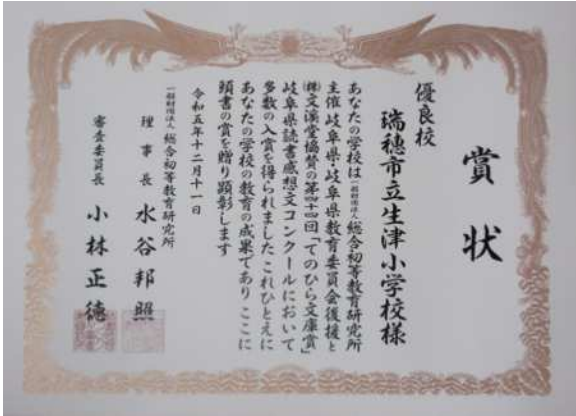 賞状
優良校
瑞穂市立生津小学校様
あなたの学校は一般財団法人総合初等教育研究所
主催岐阜県・岐阜県教育委員会後援と
㈱文溪堂協賛の第四十四回「てのひら文庫賞」
岐阜県読書感想文コンクールにおいて
多数の入賞を得られましたこれひとえに
あなたの学校の教育の成果でありここに
頭書の賞を贈り顕彰します
令和五年十二月十一日
一般財団法人総合初等教育研究所
理事長 水谷邦照
審査委員長 小林正徳